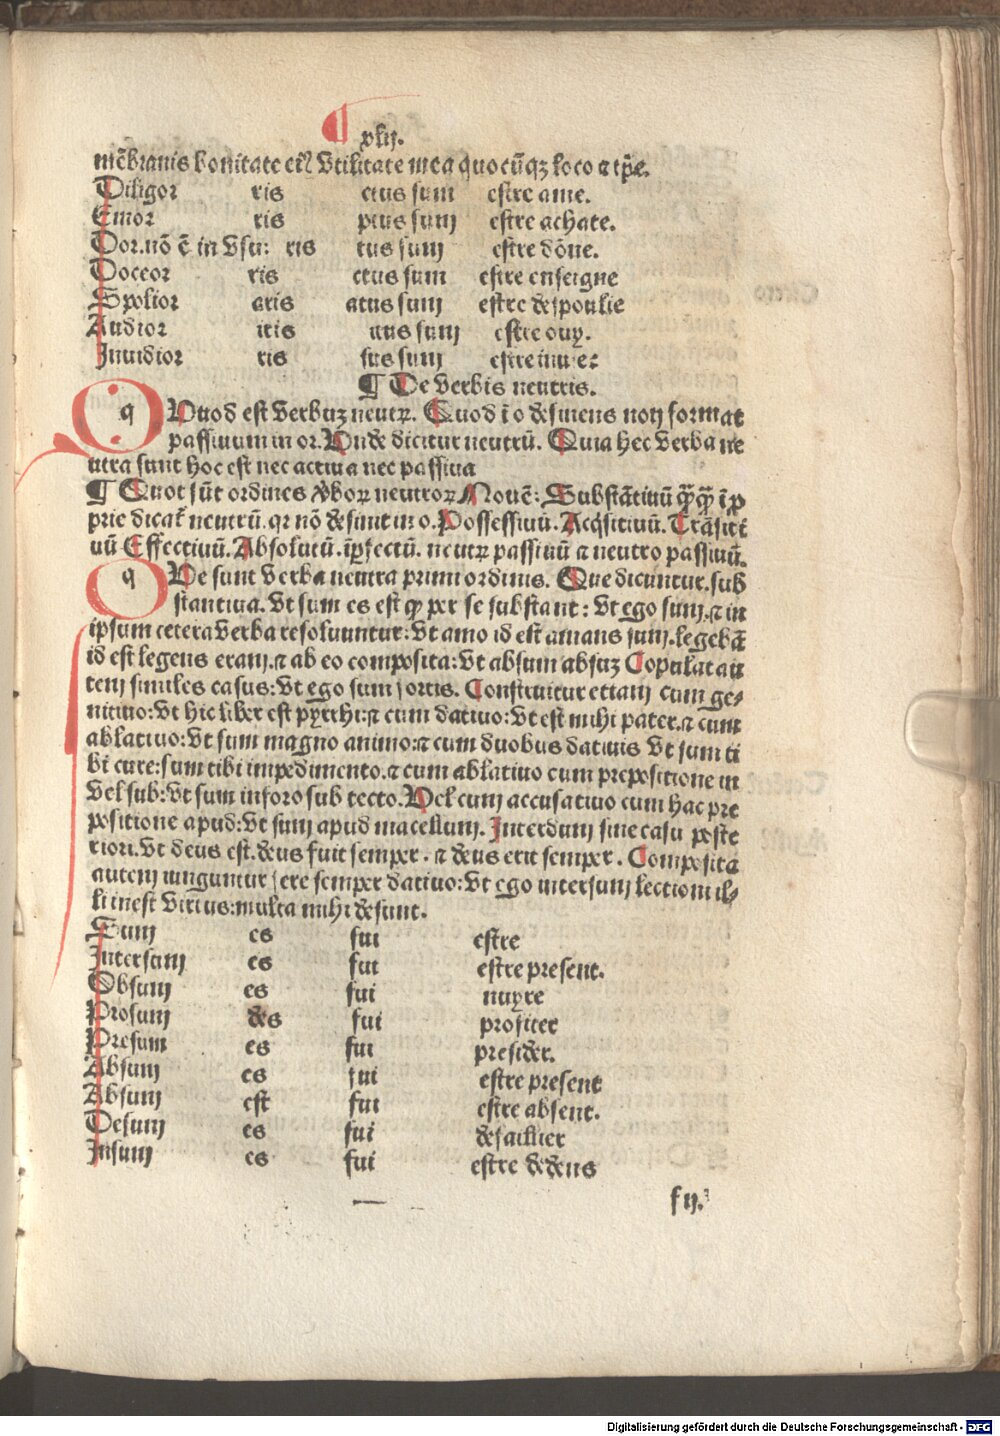 ¶ xlij.
mēbranis bonitate etl̄ Vtilitate mea quocūqꝫ loco ⁊ tp̄e.
Diligor ris ctus sum estre ame.
Emor ris ptus sum estre achate.
Dor. nō ē in Vsu: ris tus sum estre dōne.
Doceor ris ctus sum estre enseigne
Spolior aris atus sum estre despoulie
Audior iris itus sum estre ouy.
Inuidior ris sus sum estre inuie:
¶ De Verbis neutris.
q QVuod est Verbuꝫ neutꝝ. Quod ī o desinens non format
passiuum in or. Vnde dicitur neutrū. Quia hec Verba ne
utra sunt hoc est nec actiua nec passiua
¶ Quot sūt ordines v̄boꝝ neutroꝝ Nouē: Substātiuū qꝫqꝫ īꝓ
prie dicat̄ neutrū. qr nō desinit in o. Possessiuū. Acq̄sitiuū. Trāsiti
uū Effectiuū. Absolutū. īp̄fectū. neutꝝ passiuū ⁊ neutro passiuū.
q QVe sunt Verba neutra primi ordinis. Que dicuntur. sub
stantiua. Vt sum es est qꝫ per se substant: Vt ego sum. ⁊ in
ipsum cetera Verba resoluuntur: Vt amo id est amans sum. legebā
id est legens eram. ⁊ ab eo composita: Vt absum absuꝫ Copulat au
tem similes casus: Vt ego sum fortis. Construitur etiam cum ge⸗
nitiuo: Vt hic liber est pyrrhi: ⁊ cum datiuo: Vt est mihi pater. ⁊ cum
ablatiuo: Vt sum magno animo: ⁊ cum duobus datiuis Vt sum ti
bi cure: sum tibi impedimento. ⁊ cum ablatiuo cum prepositione in
Vel sub: Vt sum in foro sub tecto. Vel cum accusatiuo cum hac pre
positione apud: Vt sum apud macellum. Interdum sine casu poste
riori. Vt deus est. deus fuit semper. ⁊ deus erit semper. Composita
autem iunguntur fere semper datiuo: Vt ego intersum lectioni il⸗
li inest Virtus: multa mihi desunt.
Sum es fui estre
Intersum es fui estre present.
Obsum es fui nuyre
Prosum des fui profiter
Presum es fui presider.
Absum es fui estre present
Absum est fui estre absent.
Desum es fui defaillier
Insum es fui estre dedens
f ij.
Digitalisierung gefördert durch die Deutsche Forschungsgemeinschaft - DFG